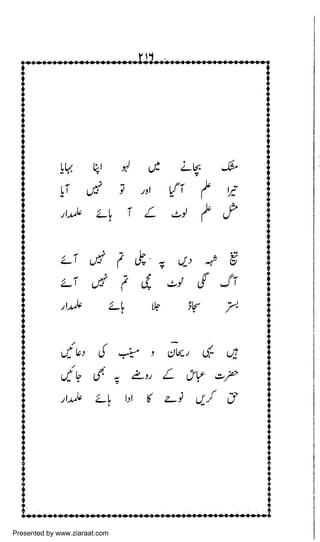 ۲۱۶
مشک بچانے میں لہو اپنا بہایا
تیرا علم آ گیا اور تو نہیں آیا
مثل علم لوٹ کے آ ہائے علمدار
تیغ شہہ دیں پہ چلی تم نہیں آئے
آگ لگی لوٹ مچی تم نہیں آئے
بستر سجادؑ جلا ہائے علمدار
ہیں یہی ریحانؔ و مبیںؔ کی دعائیں
حضرت عباسؑ کے روضے پہ بھی جائیں
حق کریں نوحے کا ادا ہائے علمدار
Presented by www.ziaraat.com